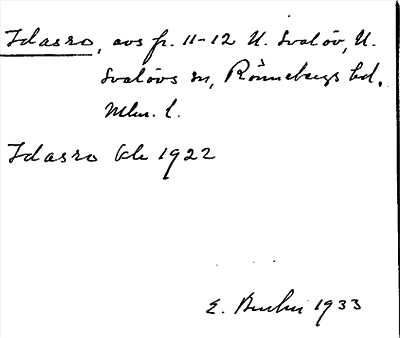 Idasro, avs fr. 11-12 N. Svalöv, N.
Svalövs sn, Rönnebergs hd,
Mlm. l.
Idasro Ek 1922
E. 1933